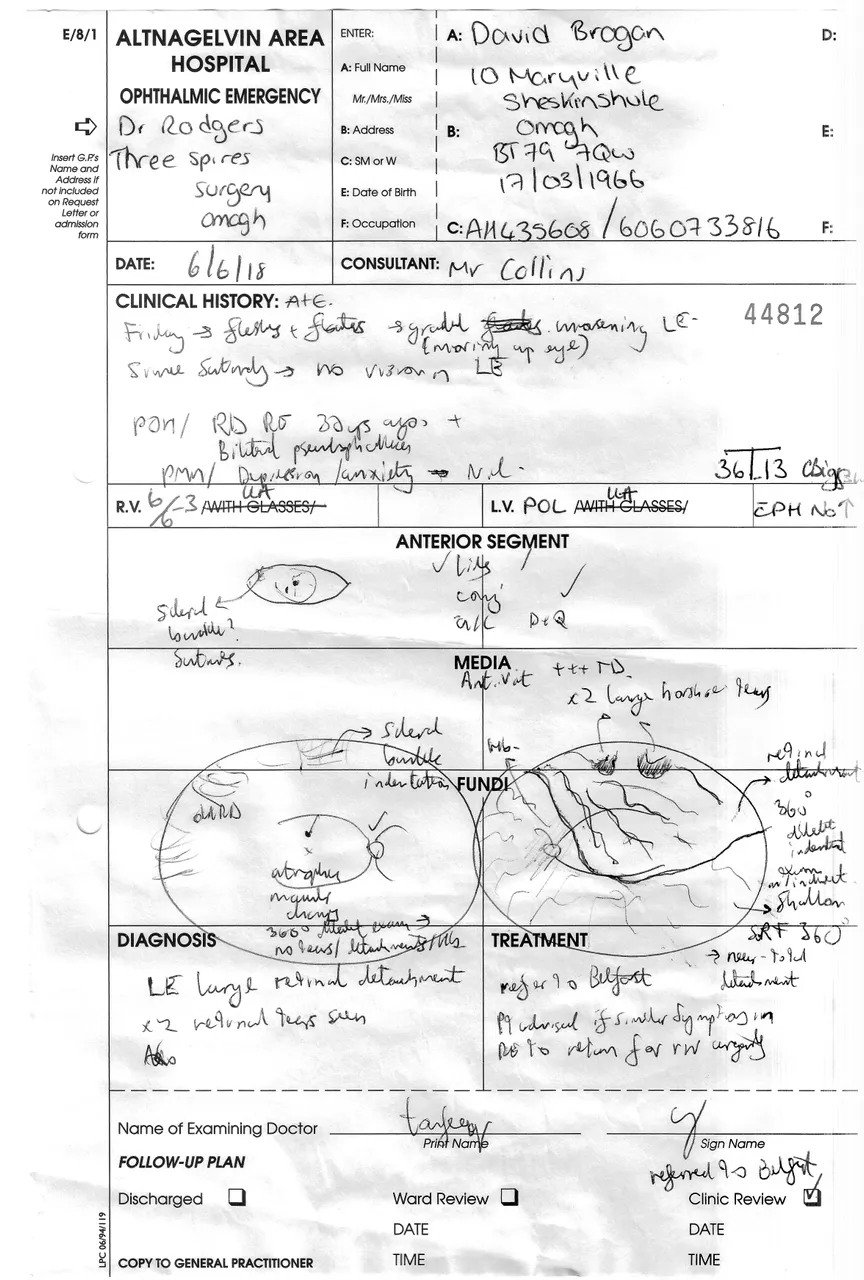 E/8/1
ALTNAGELVIN AREA
HOSPITAL
OPHTHALMIC EMERGENCY
Dr Rodgers
Three Spires
Surgery
Omagh
Insert G.P.'s
Name and
Address if
not included
on Request
Letter or
admission
form
ENTER:
A: Full Name
Mr./Mrs./Miss
B: Address
C: SM or W
E: Date of Birth
F: Occupation
A: David Brogan
10 Maryville
Sheskinshule
B: Omagh
BT79 7QW
17/03/1966
C: AH435608/6060733816
D:
E:
F:
DATE: 6/6/18
CONSULTANT: Mr Collins
CLINICAL HISTORY: A+E.
44812
Friday → flashes + floaters → gradual worsening LE-
(moving up eye)
Since Saturday → no vision in LE
POH/ RD RE ago +
Bilateral pseudophakics
PMH/ Depression/anxiety Nil.
36 13
R.V. 6/6 -3 UA WITH GLASSES/
L.V. POL UA WITH GLASSES/
EPH No ↑
ANTERIOR SEGMENT
✓ Lids
conj ✓
a/c D+Q
Scleral
buckle?
Sutures.
MEDIA
Ant. Vit +++ TD.
x2 large horshoe tears
→ Scleral
buckle
indentation
FUNDI
retinal
detachment
360°
indented
exam
w/indirect
→ Shallow
SRF 360°
→ near-total
detachment
atrophy
macula
changes
360° exam →
no tears/detachments/
DIAGNOSIS
LE large retinal detachment
x2 retinal tears seen
TREATMENT
refer to Belfast
Pt advised if similar symptoms in
RE to return for rv urgently
Name of Examining Doctor
Print Name
Sign Name
FOLLOW-UP PLAN
referred to Belfast
Discharged
Ward Review
Clinic Review ✓
DATE
DATE
TIME
TIME
COPY TO GENERAL PRACTITIONER
LPC 06/94/119